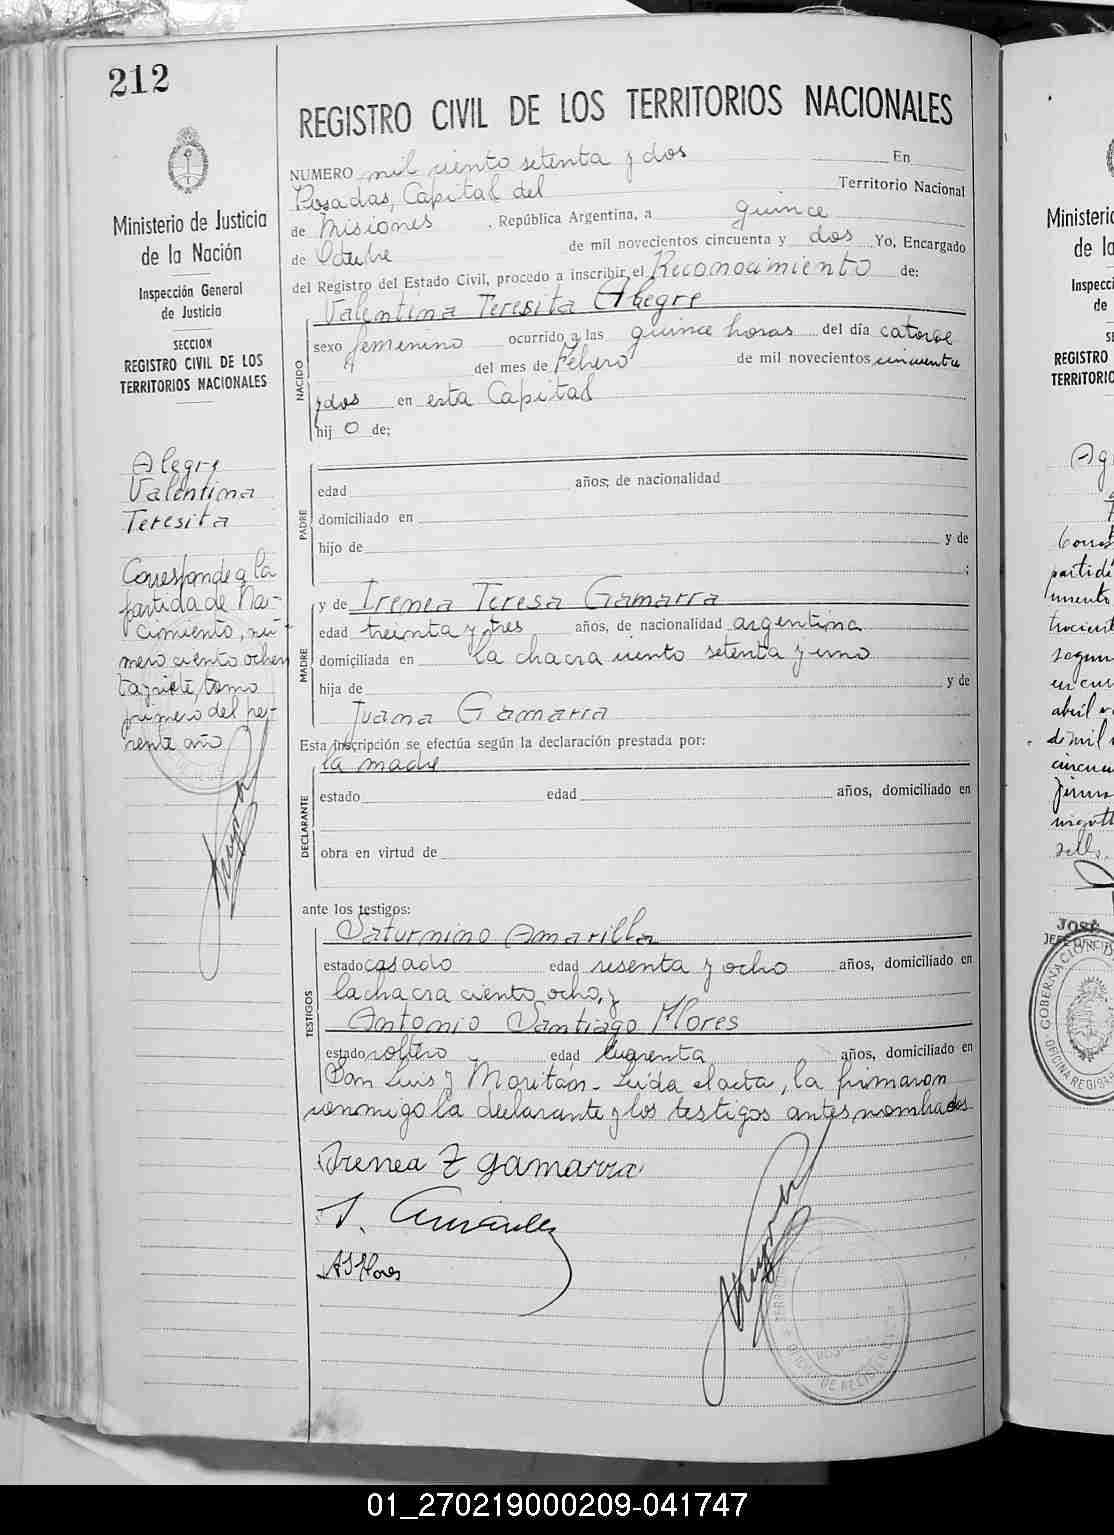 212
Ministerio de Justicia
de la Nación
Inspección General
de Justicia
SECCION
REGISTRO CIVIL DE LOS
TERRITORIOS NACIONALES
Alegre
Valentina
Teresita
Corresponde a la
partida de Na-
cimiento, nú-
mero ciento ochen
ta y siete, tomo
primero del pre-
sente año
REGISTRO CIVIL DE LOS TERRITORIOS NACIONALES
NUMERO mil ciento setenta y dos En
Posadas, Capital del Territorio Nacional
de Misiones, República Argentina, a quince
de Octubre de mil novecientos cincuenta y dos Yo, Encargado
del Registro del Estado Civil, procedo a inscribir el Reconocimiento de:
NACIDO
Valentina Teresita Alegre
sexo femenino ocurrido a las quince horas del día catorce
del mes de Febrero de mil novecientos cincuenta
y dos en esta Capital
hij o de:
PADRE
edad años; de nacionalidad
domiciliado en
hijo de y de
;
MADRE
y de Irenea Teresa Gamarra
edad treinta y tres años, de nacionalidad argentina
domiciliada en la chacra ciento setenta y uno
hija de y de
Juana Gamarra
Esta inscripción se efectúa según la declaración prestada por:
DECLARANTE
la madre
estado edad años, domiciliado en
obra en virtud de
ante los testigos:
TESTIGOS
Saturnino Amarilla
estado casado edad sesenta y ocho años, domiciliado en
la chacra ciento ocho, y
Antonio Santiago Flores
estado soltero edad cuarenta años, domiciliado en
San Luis y Moritán - Leída el acta, la firmaron
conmigo la declarante y los testigos antes nombrados
Irenea T gamarra
A S Flores
Ministerio
de la
Inspecci
de
SE
REGISTRO
TERRITORIO
partid
abril
JOSÉ
GOBERNACION D
OFICINA REGISTR
01_270219000209-041747